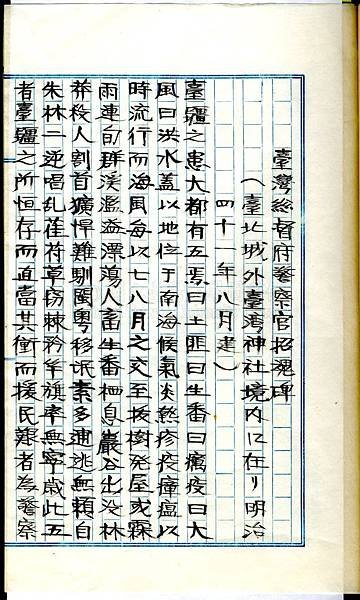 臺灣總督府警察官招魂碑
(臺北城外臺灣神社境內ニ在リ明治
四十一年八月建)
臺疆之患大都有五焉曰土匪曰生番曰癘疫曰大
風曰洪水蓋以地位于南海候氣炎熱疹疫瘴瘟以
時流行而海風每以七八月之交至拔樹発屋或霖
雨連旬群溪濫溢澤蕩人畜生番栖息巖谷出沒林
莽殺人割首獷悍難馴閩粵移氓素多逋逃無賴自
朱林二逆唱乱萑苻草竊棘矜竿旗率無寧歲此五
者臺疆之所恒存而直當其衝而援民艱者為警察